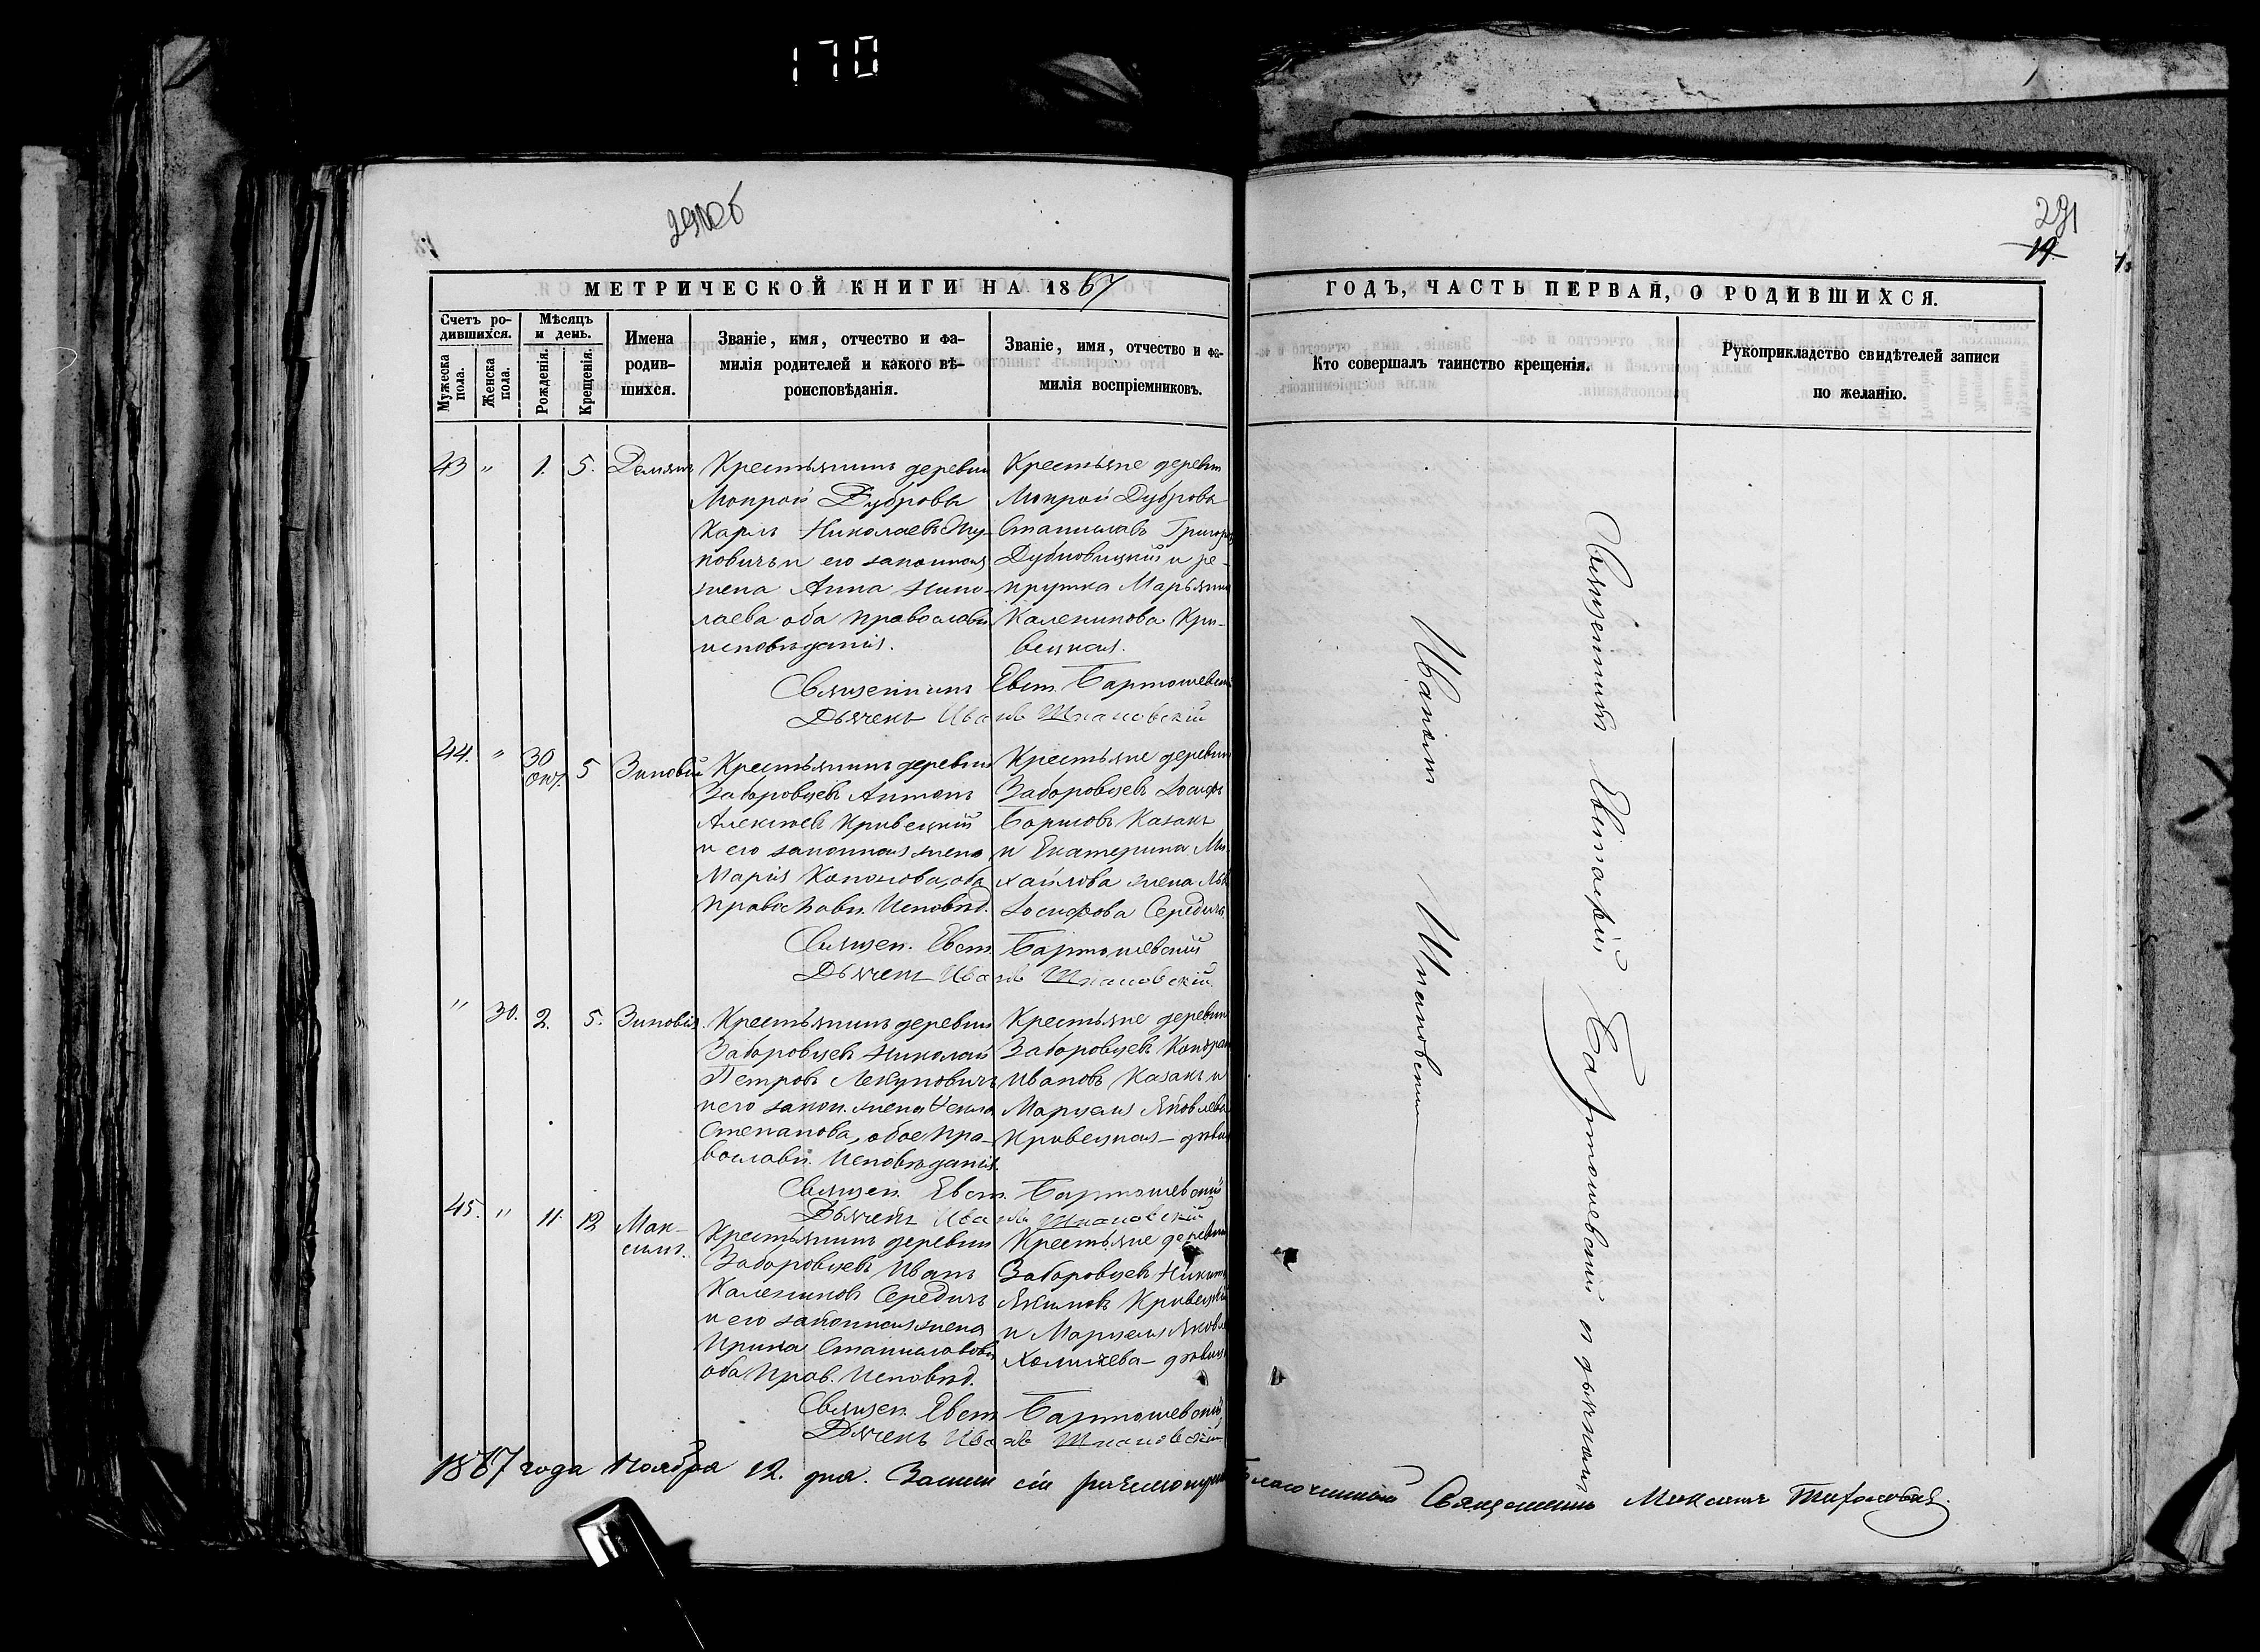 170
290об
291
19.
МЕТРИЧЕСКОЙ КНИГИ НА 1867
ГОДЪ, ЧАСТЬ ПЕРВАЯ, О РОДИВШИХСЯ.
Счетъ ро-
дившихся.
Мужеска
пола.
Женска
пола.
Мѣсяцъ
и день.
Рожденія.
Крещенія.
Имена
родив-
шихся.
Званіе, имя, отчество и фа-
милія родителей и какого вѣ-
роисповѣданія.
Званіе, имя, отчество и фа-
милія воспріемниковъ.
Кто совершалъ таинство крещенія.
Рукоприкладство свидѣтелей записи
по желанію.
43 " 1. 5. Демянъ
Крестьянинъ деревни
Мокрой Дубровы
Карлъ Николаевъ
и его законная
жена Анна Нико-
лаева оба православн
исповѣданія.
Крестьяне деревни
Мокрой Дубровы
Станиславъ Григоров
и ре-
крутка Марьянна
Каленикова Кри-
вецкая.
Священникъ Евст. Бартошевскій
Дьячекъ Иванъ Шпановскій
44. " 30 Окт. 5 Зиновій
Крестьянинъ деревни
Заборовцевъ Антонъ
Алексѣевъ Кривецкій
и его законная жена
Марія Кононова, оба
православн. Исповѣд.
Крестьяне деревни
Заборовцевъ Іосифъ
Борисовъ Казакъ
и Екатерина Ми-
хайлова жена
Іосифова Середичъ
Священ. Евст. Бартошевскій
Дьячекъ Иванъ Шпановскій
" 30. 2. 5. Зиновія.
Крестьянинъ деревни
Заборовцевъ Николай
Петровъ Лекуновичъ
и его закон. жена Текля
Степанова, обое пра-
вославн. Исповѣданія.
Крестьяне деревни
Заборовцевъ Кондрат
Ивановъ Казакъ и
Марцеля Яковлева
Кривецкая – дѣвиц
Священ. Евст. Бартошевскій
Дьячекъ Иванъ Шпановскій
45. " 11. 12 Мак-
симъ.
Крестьянинъ деревни
Заборовцевъ Иванъ
Калениковъ Середичъ
и его законная жена
Ирина Станиславова
оба Прав. Исповѣд.
Крестьяне деревни
Заборовцевъ Никита
Якимовъ Кривецкій
и Марцеля Яковле
Хомичева – дѣвица
Священ. Евст. Бартошевскій
Дьячекъ Иванъ Шпановскій
Священникъ Евстафій Бартошевскій съ дьячкомъ
Иваномъ Шпановскимъ
1867 года Ноября 12. дня. Записи сіи Благочинный Священникъ Максимъ